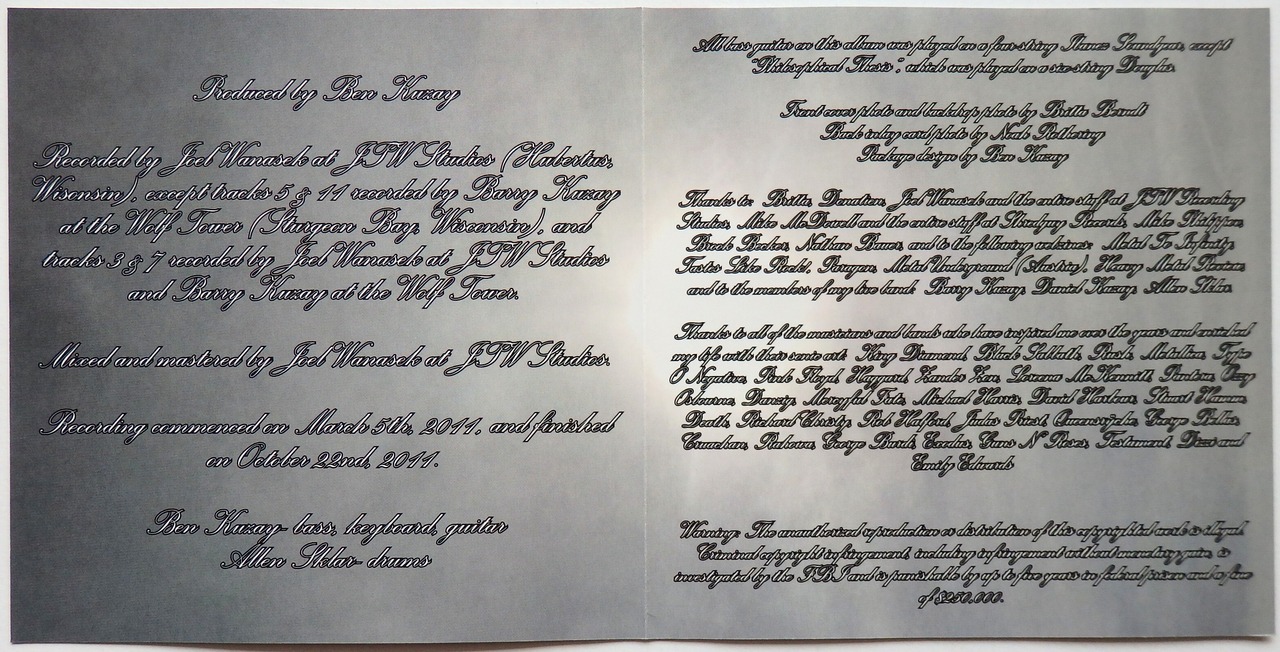 Produced by Ben Kazay
Recorded by Joel Wanasek at JTW Studios (Hubertus,
Wisonsin), except tracks 5 & 11 recorded by Barry Kazay
at the Wolf Tower (Sturgeon Bay, Wisconsin), and
tracks 3 & 7 recorded by Joel Wanasek at JTW Studios
and Barry Kazay at the Wolf Tower.
Mixed and mastered by Joel Wanasek at JTW Studios.
Recording commenced on March 5th, 2011, and finished
on October 22nd, 2011.
Ben Kazay- bass, keyboard, guitar
Allen Sklar- drums
All bass guitar on this album was played on a four-string Ibanez Soundgear, except
"Philosophical Thesis", which was played on a six-string Douglas.
Front cover photo and backdrop photo by Britta Berndt
Back inlay card photo by Noah Rothering
Package design by Ben Kazay
Thanks to: Britta, Donation, Joel Wanasek and the entire staff at JTW Recording
Studios, Mike McDowell and the entire staff at Shredguy Records, Mike
Brock Becker, Nathan Bauer, and to the following webzines: Metal To Infinity,
Tastes Like Rock!, Paragon, Metal Underground (Austria), Heavy Metal Review,
and to the members of my live band: Barry Kazay, Daniel Kazay, Allen Sklar.
Thanks to all of the musicians and bands who have inspired me over the years and enriched
my life with their sonic art: King Diamond, Black Sabbath, Rush, Metallica, Type
O Negative, Pink Floyd, Haggard, Zander Zon, Loreena McKennitt, Pantera, Ozzy
Osbourne, Danzig, Mercyful Fate, Michael Harris, David Harbour, Stuart Hamm,
Death, Richard Christy, Rob Halford, Judas Priest, Queensrÿche, George Bellas,
Cruachan, George Exodus, Guns N' Roses, Testament, and
Emily Edwards
Warning: The unauthorized reproduction or distribution of this copyrighted work is illegal.
Criminal copyright infringement, including infringement without monetary gain, is
investigated by the FBI and is punishable by up to five years in federal prison and a fine
of $250,000.